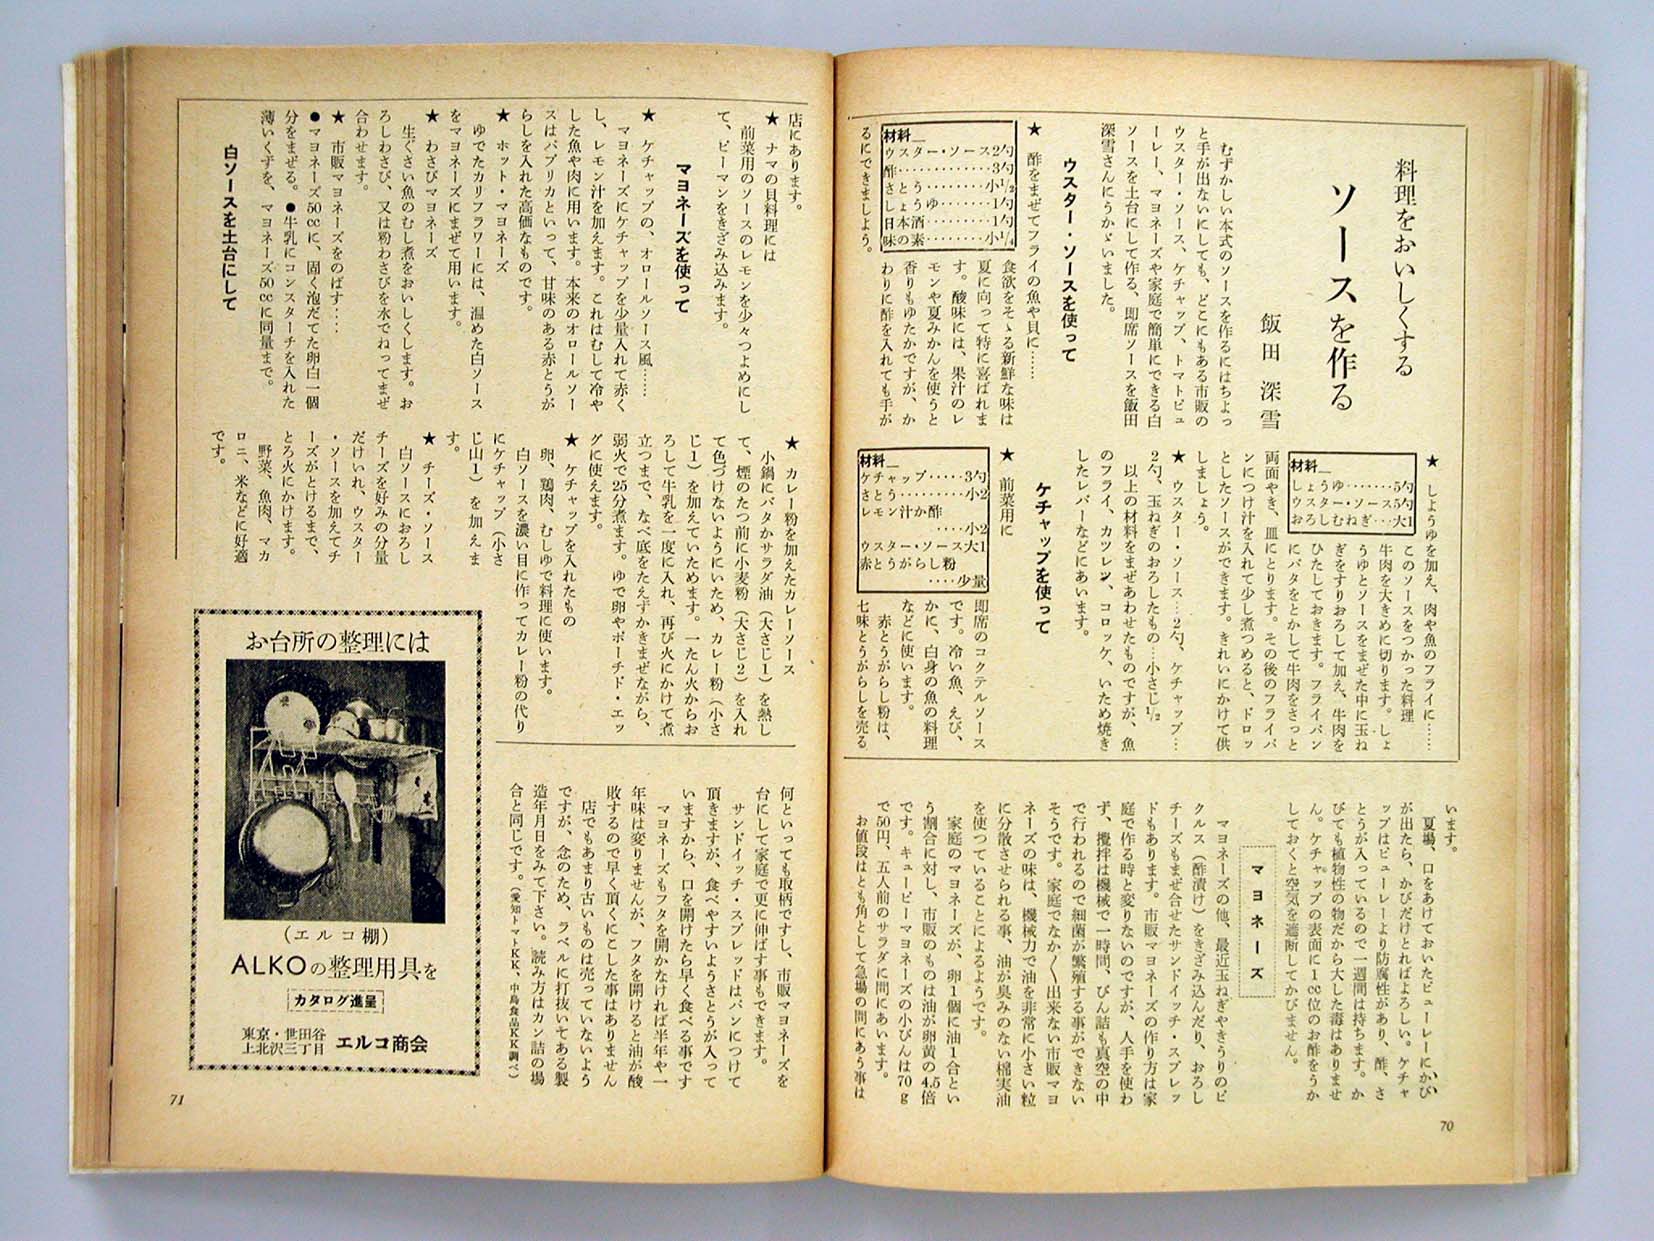 料理をおいしくする
ソースを作る
飯田 深雪
むずかしい本式のソースを作るにはちょっ
と手が出ないにしても、どこにもある市販の
ウスター・ソース、ケチャップ、トマトピュ
ーレー、マヨネーズや家庭で簡単にできる白
ソースを土台にして作る、即席ソースを飯田
深雪さんにうかゞいました。
ウスター・ソースを使って
★ 酢をまぜてフライの魚や貝に……
材料
ウスター・ソース2勺
酢…………3勺
さとう……小1/2
しょゆ……1勺
日本酒……1勺
味の素……小1/4
食欲をそゝる新鮮な味は
夏に向って特に喜ばれま
す。酸味には、果汁のレ
モンや夏みかんを使うと
香りもゆたかですが、か
わりに酢を入れても手が
るにできましょう。
★ しょうゆを加え、肉や魚のフライに……
材料
しょうゆ……5勺
ウスター・ソース5勺
おろしむねぎ…大1
このソースをつかった料理
牛肉を大きめに切ります。しょ
うゆとソースをまぜた中に玉ね
ぎをすりおろして加え、牛肉を
ひたしておきます。フライパン
にバタをとかして牛肉をさっと
両面やき、皿にとります。その後のフライパ
ンにつけ汁を入れて少し煮つめると、ドロッ
としたソースができます。きれいにかけて供
しましょう。
★ ウスター・ソース…2勺、ケチャップ…
2勺、玉ねぎのおろしたもの…小さじ1/2
以上の材料をまぜあわせたものですが、魚
のフライ、カツレツ、コロッケ、いため焼き
したレバーなどにあいます。
ケチャップを使って
★ 前菜用に
材料
ケチャップ……3勺
さとう………小2
レモン汁か酢
……小2
ウスター・ソース大1
赤とうがらし粉
……少量
即席のコクテルソース
です。冷い魚、えび、
かに、白身の魚の料理
などに使います。
赤とうがらし粉は、
七味とうがらしを売る
店にあります。
★ ナマの貝料理には
前菜用のソースのレモンを少々つよめにし
て、ピーマンをきざみ込みます。
マヨネーズを使って
★ ケチャップの、オロールソース風……
マヨネーズにケチャップを少量入れて赤く
し、レモン汁を加えます。これはむして冷や
した魚や肉に用います。本来のオロールソー
スはパプリカといって、甘味のある赤とうが
らしを入れた高価なものです。
★ ホット・マヨネーズ
ゆでたカリフラワーには、温めた白ソース
をマヨネーズにまぜて用います。
★ わさびマヨネーズ
生ぐさい魚のむし煮をおいしくします。お
ろしわさび、又は粉わさびを水でねってまぜ
合わせます。
★ 市販マヨネーズをのばす……
●マヨネーズ50ccに、固く泡だてた卵白一個
分をまぜる。●牛乳にコンスターチを入れた
薄いくずを、マヨネーズ50ccに同量まで。
白ソースを土台にして
★ カレー粉を加えたカレーソース
小鍋にバタかサラダ油（大さじ1）を熱し
て、煙のたつ前に小麦粉（大さじ2）を入れ
て色づけないようにいため、カレー粉（小さ
じ1）を加えていためます。一たん火からお
ろして牛乳を一度に入れ、再び火にかけて煮
立つまで、なべ底をたえずかきまぜながら、
弱火で25分煮ます。ゆで卵やポーチド・エッ
グに使えます。
★ ケチャップを入れたもの
卵、鶏肉、むしゆで料理に使います。
白ソースを濃い目に作ってカレー粉の代り
にケチャップ（小さ
じ山1）を加えま
す。
★ チーズ・ソース
白ソースにおろし
チーズを好みの分量
だけいれ、ウスター
・ソースを加えてチ
ーズがとけるまで、
とろ火にかけます。
野菜、魚肉、マカ
ロニ、米などに好適
です。
います。
夏場、口をあけておいたピューレーにかび、
が出たら、かびだけとればよろしい。ケチャ
ップはピューレーより防腐性があり、酢、さ
とうが入っているので一週間は持ちます。か
びても植物性の物だから大した毒はありませ
ん。ケチャップの表面に1cc位のお酢をうか
しておくと空気を遮断してかびません。
マヨネーズ
マヨネーズの他、最近玉ねぎやきうりのピ
クルス（酢漬け）をきざみ込んだり、おろし
チーズもまぜ合せたサンドイッチ・スプレッ
ドもあります。市販マヨネーズの作り方は家
庭で作る時と変りないのですが、人手を使わ
ず、攪拌は機械で一時間、びん詰も真空の中
で行われるので細菌が繁殖する事ができない
そうです。家庭でなか〳〵出来ない市販マヨ
ネーズの味は、機械力で油を非常に小さい粒
に分散させられる事、油が臭みのない棉実油
を使っていることによるようです。
家庭のマヨネーズが、卵1個に油1合とい
う割合に対し、市販のものは油が卵黄の4.5倍
です。キューピーマヨネーズの小びんは70g
で50円、五人前のサラダに間にあいます。
お値段はとも角として急場の間にあう事は
何といっても取柄ですし、市販マヨネーズを
台にして家庭で更に伸ばす事もできます。
サンドイッチ・スプレッドはパンにつけて
頂きますが、食べやすいようさとうが入って
いますから、口を開けたら早く食べる事です
マヨネーズもフタを開かなければ半年や一
年味は変りませんが、フタを開けると油が酸
敗するので早く頂くにこした事はありません
店でもあまり古いものは売っていないよう
ですが、念のため、ラベルに打抜いてある製
造年月日をみて下さい。読み方はカン詰の場
合と同じです。（愛知トマトKK、中島食品KK調べ）
お台所の整理には
（エルコ棚）
ALKOの整理用具を
カタログ進呈
東京・世田谷
上北沢三丁目
エルコ商会
70
71